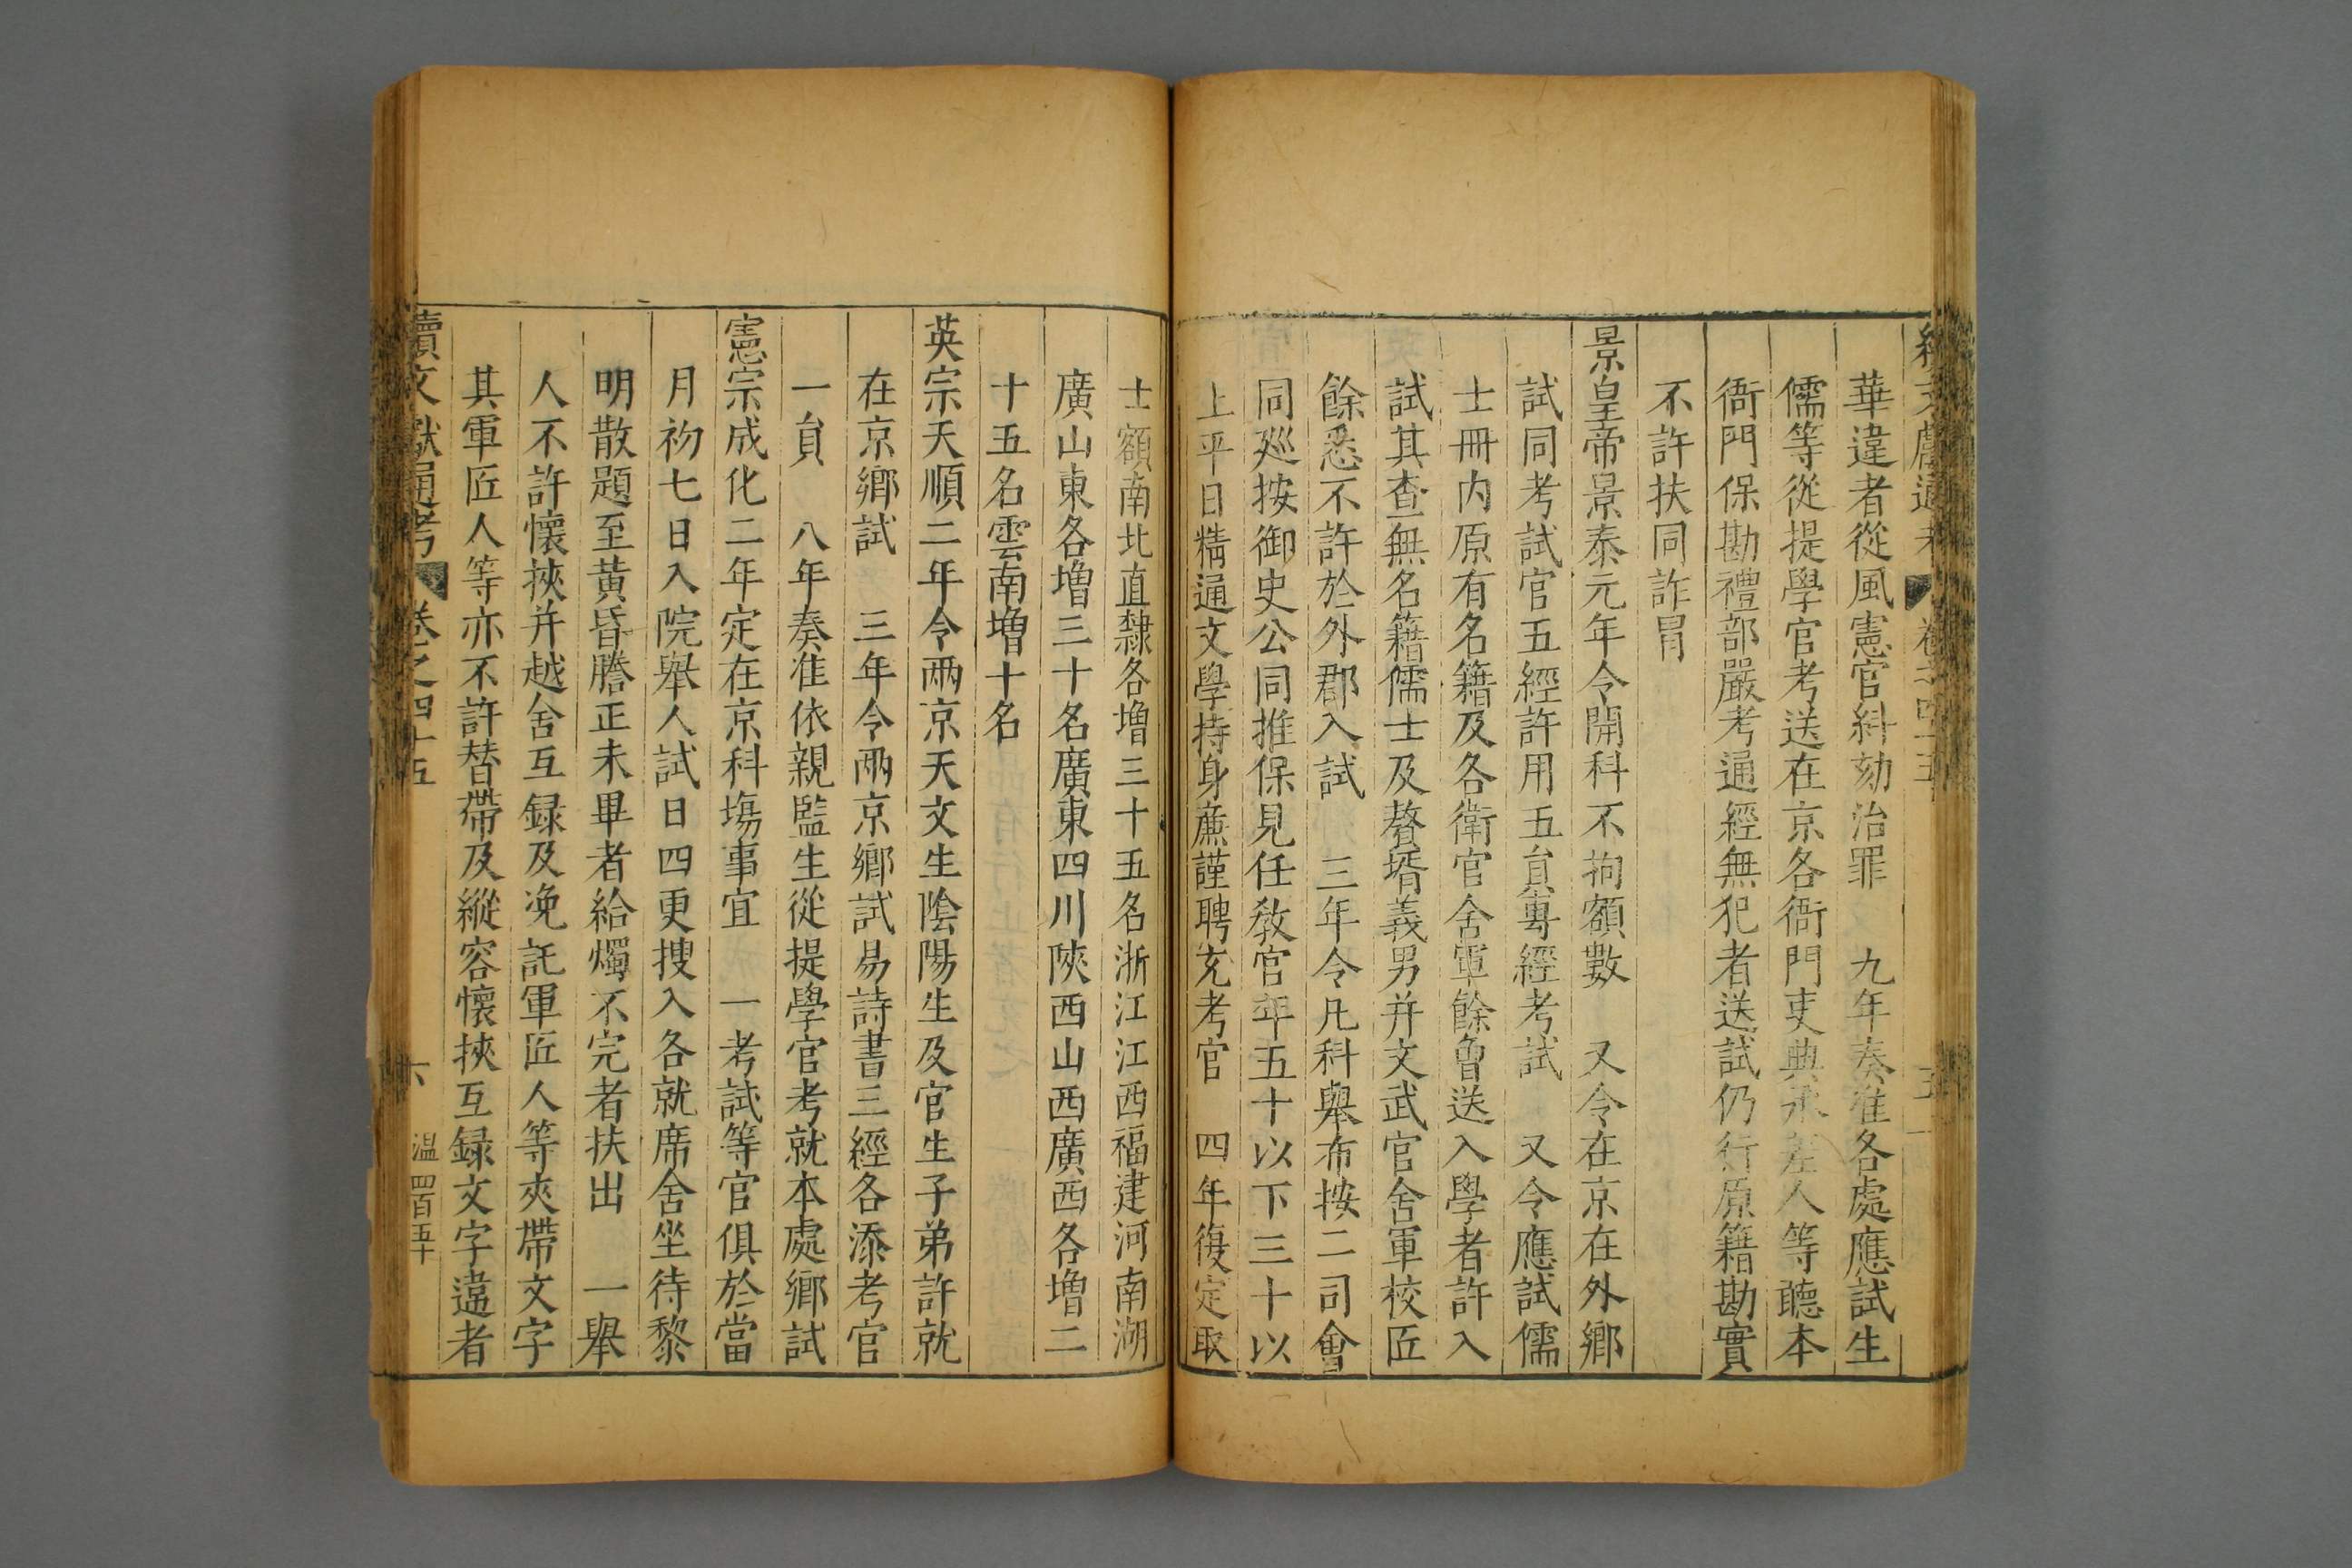 續文獻通考 卷之四十五 五
華違者從風憲官糾劾治罪 九年奏准各處應試生
儒等從提學官考送在京各衙門吏典承差人等聽本
衙門保勘禮部嚴考通經無犯者送試仍行原籍勘實
不許扶同詐冒
景皇帝景泰元年令開科不拘額數 又令在京在外鄉
試同考試官五經許用五員專經考試 又令應試儒
士冊内原有名籍及各衛官舍軍餘曾送入學者許入
試其查無名籍儒士及贅壻義男并文武官舍軍校匠
餘悉不許於外郡入試 三年令凡科舉布按二司會
同廵按御史公同推保見任敎官年五十以下三十以
上平日精通文學持身廉謹聘充考官 四年復定取
士額南北直隸各增三十五名浙江江西福建河南湖
廣山東各增三十名廣東四川陝西山西廣西各增二
十五名雲南增十名
英宗天順二年令兩京天文生陰陽生及官生子弟許就
在京鄉試 三年令兩京鄉試易詩書三經各添考官
一員 八年奏准依親監生從提學官考就本處鄉試
憲宗成化二年定在京科塲事宜 一考試等官俱於當
月初七日入院舉人試日四更搜入各就席舍坐待黎
明散題至黃昏謄正未畢者給燭不完者扶出 一舉
人不許懷挾并越舍互録及凂託軍匠人等夾帶文字
其軍匠人等亦不許替帶及縱容懷挾互録文字違者
續文獻通考 卷之四十五 六 溫 四百五十